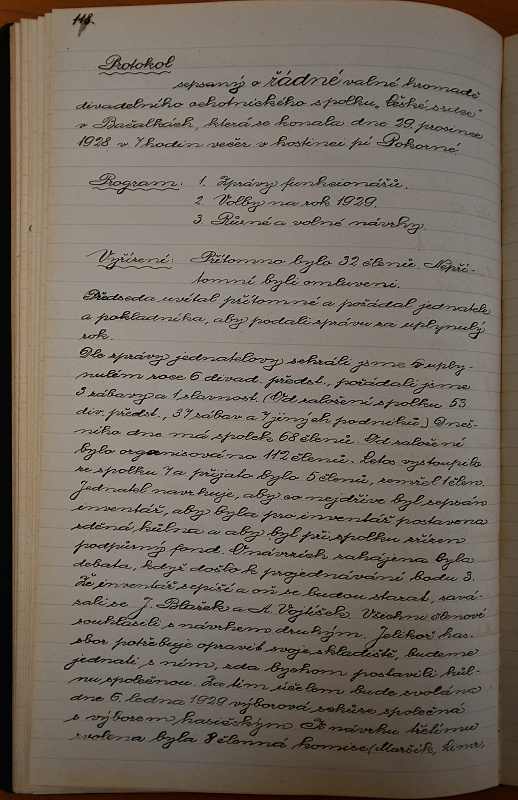 118.
Protokol
sepsaný o řádné valné hromadě
divadelního ochotnického spolku „České srdce"
v Bačalkách, která se konala dne 29. prosince
1928 v 7 hodin večer v hostinci pí Pokorné
Program: 1. Zprávy funkcionářů.
2. Volby na rok 1929.
3. Různé a volné návrhy.
Vyřízení: Přítomno bylo 32 členů. Nepří-
tomní byli omluveni.
Předseda uvítal přítomné a požádal jednatele
a pokladníka, aby podali správu za uplynulý
rok.
Dle správy jednatelovy sehráli jsme v uply-
nulém roce 6 divad. předst., pořádali jsme
3 zábavy a 1 slavnost. (Od založení spolku 53
div. předst., 37 zábav a 7 jiných podniků.) Dneš-
ního dne má spolek 68 členů. Od založení
bylo organisováno 112 členů. Letos vystoupilo
ze spolku 7 a přijato bylo 5 členů, zemřel 1 člen.
Jednatel navrhuje, aby co nejdříve byl sepsán
inventář, aby byla pro inventář postavena
zděná kůlna a aby byl při spolku zřízen
podpůrný fond. O návrzích zahájena byla
debata, když došlo k projednávání bodu 3.
Že inventář sepíší a oň se budou starat, zavá-
zali se J. Blažek a A. Vojtíšek. Všichni členové
souhlasili s návrhem druhým. Jelikož has.
sbor potřebuje opraviti svoje skladiště, budeme
jednati s ním, zda bychom postavili kůl-
nu společnou. Za tím účelem bude svolána
dne 6. ledna 1929 výborová schůze společná
s výborem hasičským. K návrhu třetímu
zvolena byla 8 členná komise (Morčík,